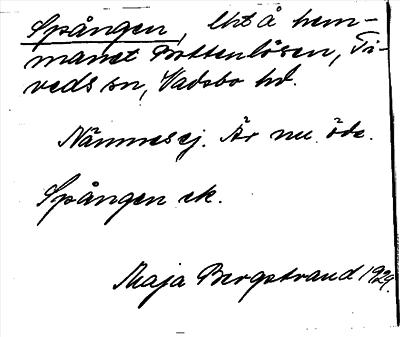 Spången, lht å hem-
manet Bottenlösen, Ti-
veds sn, Vadsbo hd.
Nämnes ej. Är nu öde.
Spången ek.
Maja Bergstrand 1929.